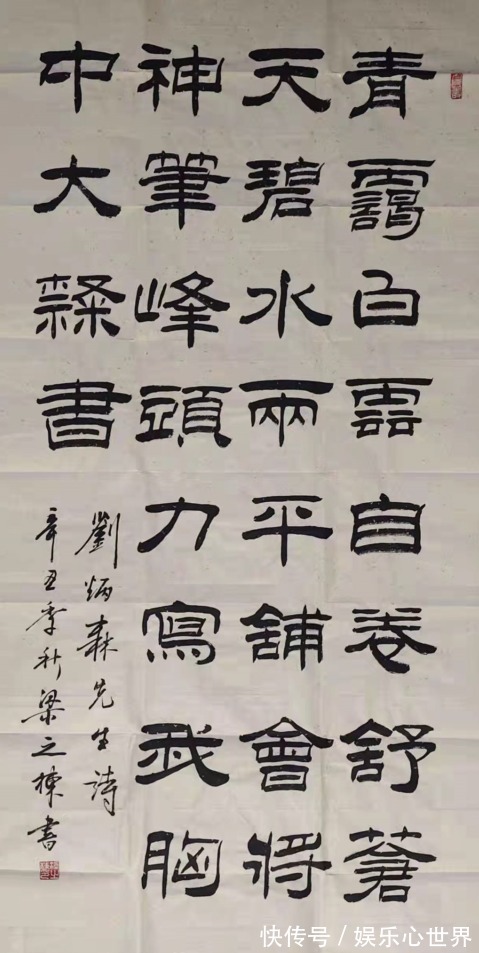 青靄白雲自卷舒蒼
天碧水兩平舖會將
神筆峰頭力寫我胸
中大隸書
劉炳森先生詩
辛丑季秋梁之棟書
快传号/娱乐心世界